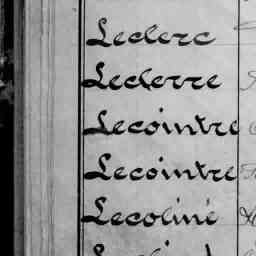 Leclerc
Leclerre
Lecointre
Lecointre
Lecoliné